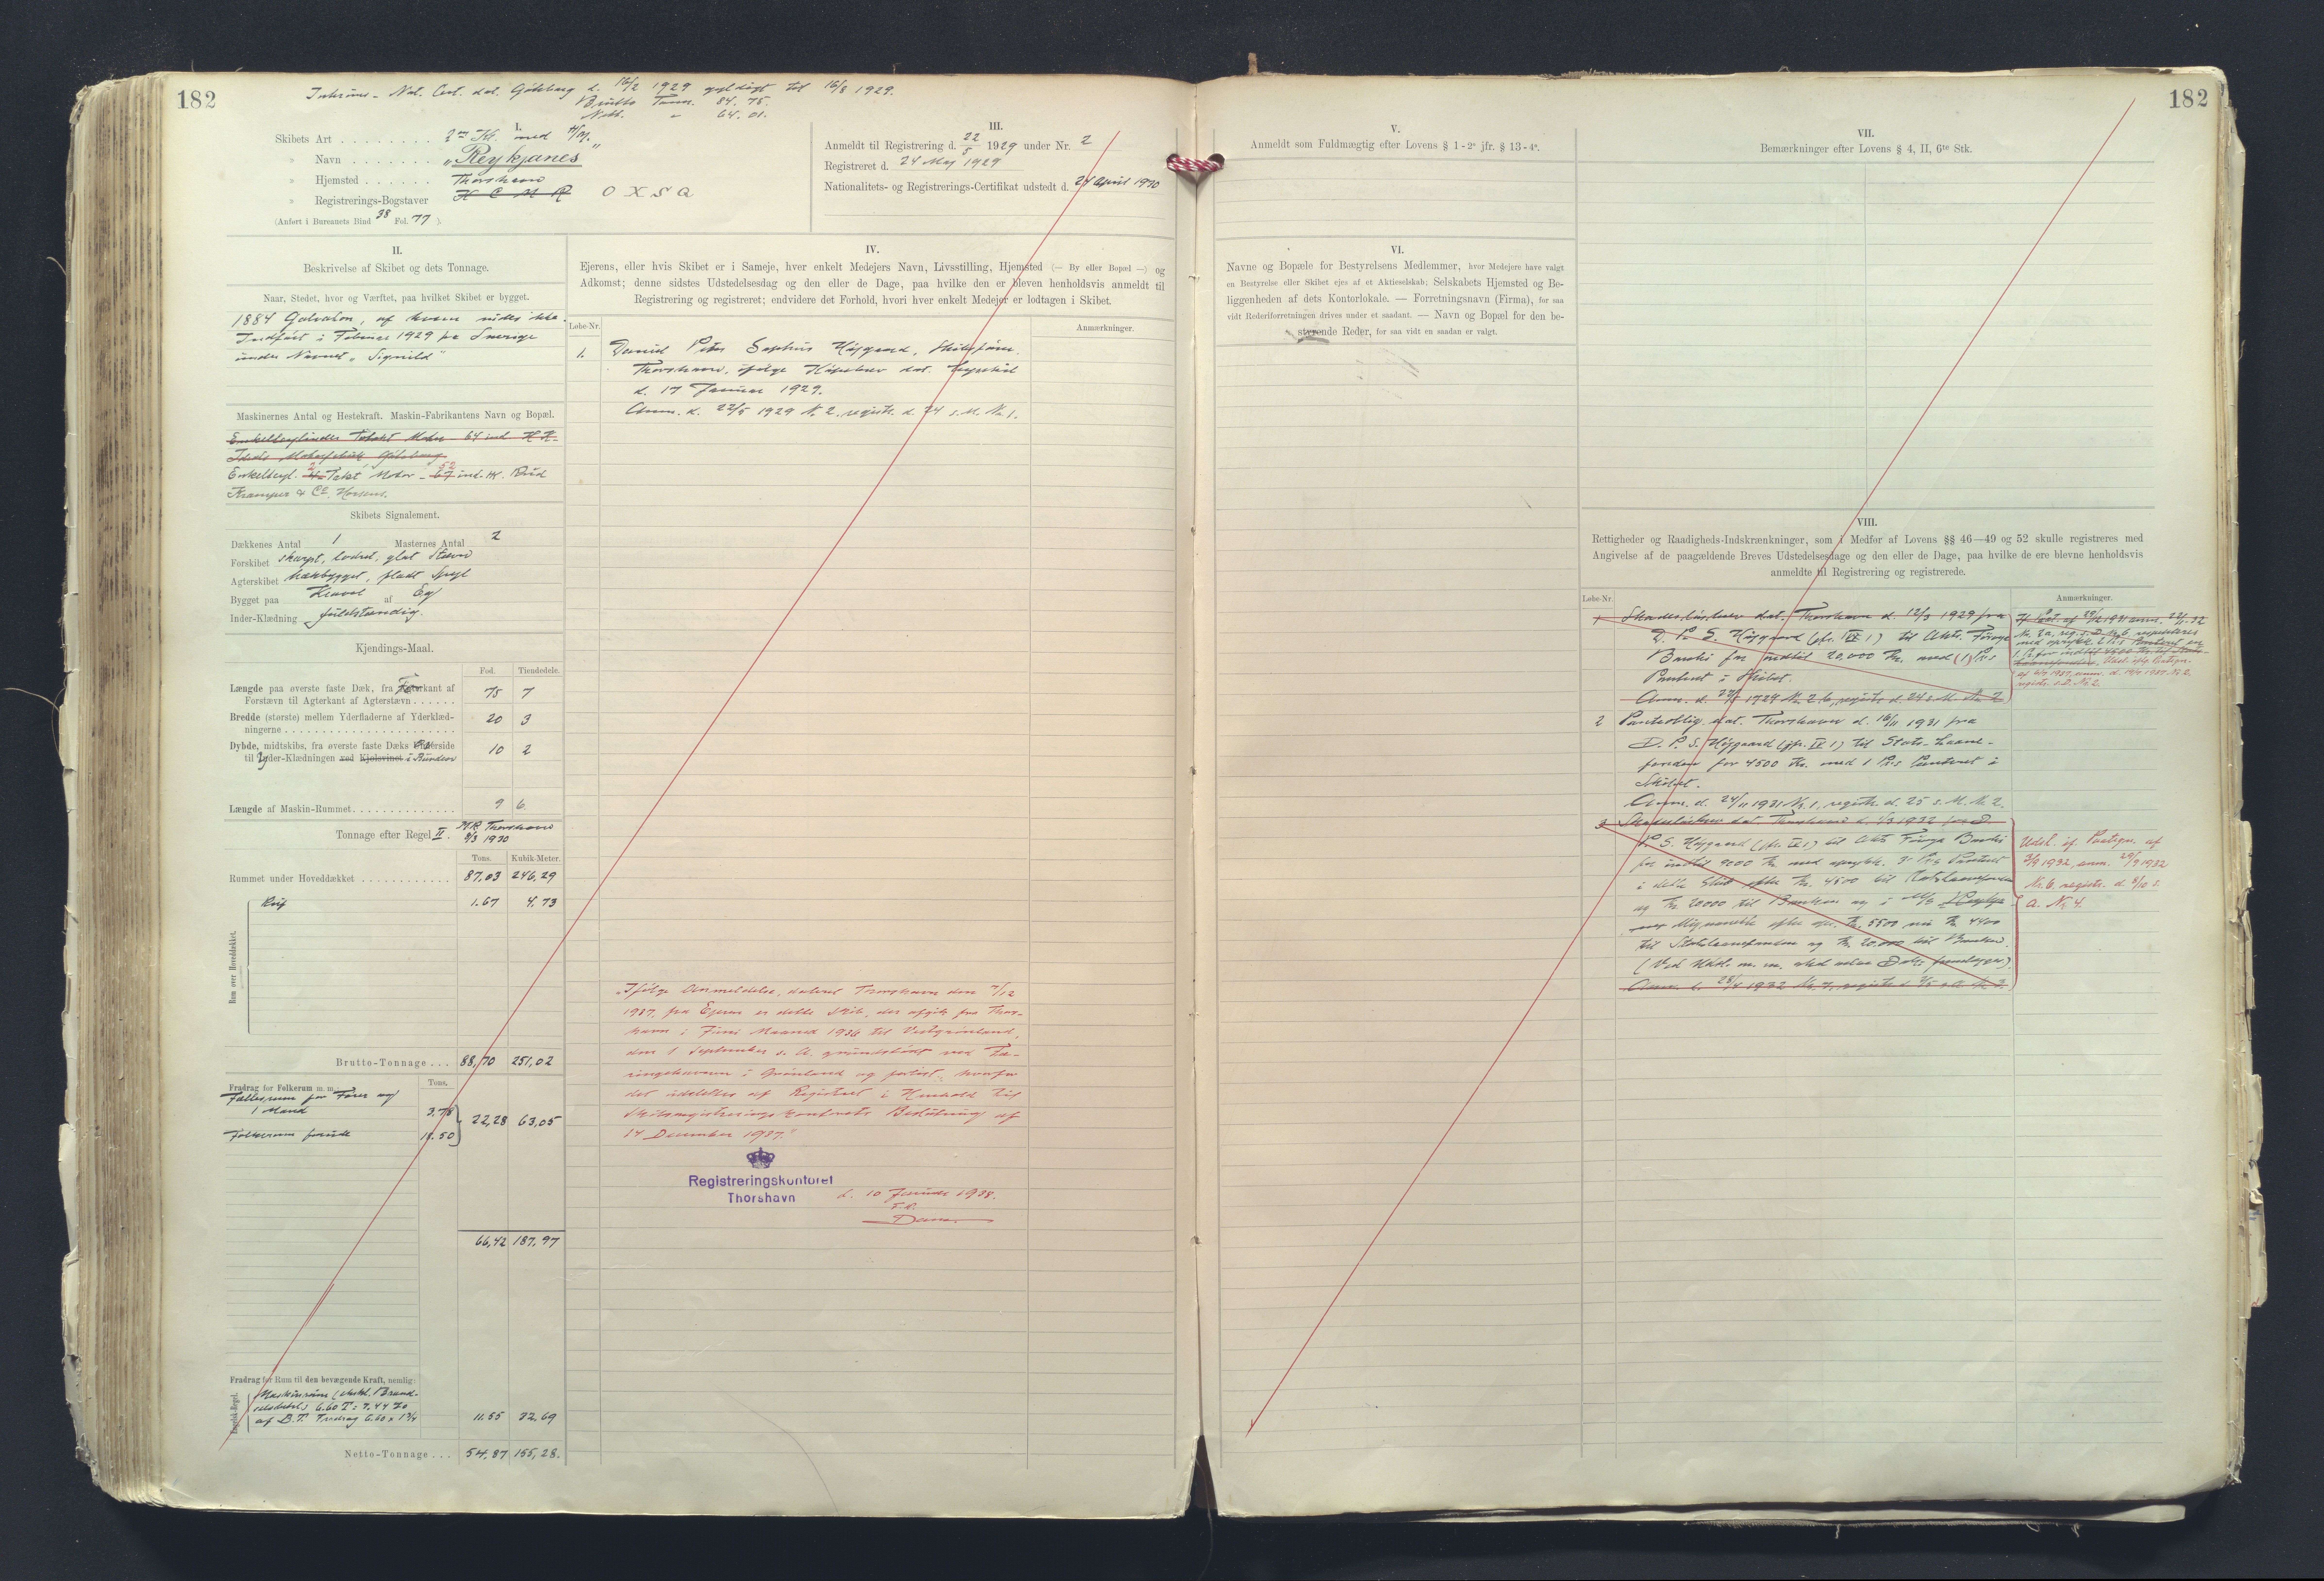 182
Interims-Nat. Cert. dat. Göteborg d. 16/2 1929 gyldigt til 16/8 1929.
Brutto Tonn. 84.75.
Nett. " 64.01.
I.
Skibets Art 2 m Sk. med H/M.
" Navn "Reykjanes"
" Hjemsted Thorshavn
" Registrerings-Bogstaver N C M R O X S Q
(Anført i Bureauets Bind 38 Fol. 77 ).
III.
Anmeldt til Registrering d. 22/5 1929 under Nr. 2
Registreret d. 24 Maj 1929
Nationalitets- og Registrerings-Certifikat udstedt d. 24 April 1930
II.
Beskrivelse af Skibet og dets Tonnage.
Naar, Stedet, hvor og Værftet, paa hvilket Skibet er bygget.
1884 af hvem vides ikke.
Indført i Februar 1929 fra Sverige
under Navnet "Signild"
Maskinernes Antal og Hestekraft. Maskin-Fabrikantens Navn og Bopæl.
Enkeltcylinder Totakt Motor - 64 ind. H.K.
Motorfabrik Göteborg
Enkeltcyl. 2 Takt Motor - 52 ind. HK.
& Co. Horsens.
Skibets Signalement.
Dækkenes Antal 1 Masternes Antal 2
Forskibet skarpt, lodret, glat Stævn
Agterskibet hækbygget, fladt Spejl
Bygget paa Kravel af Eg
Inder-Klædning fuldstændig.
Kjendings-Maal.
Fod. Tiendedele.
Længde paa øverste faste Dæk, fra Forkant af
Forstævn til Agterkant af Agterstævn 75 7
Bredde (største) mellem Yderfladerne af Yderklæd-
ningerne 20 3
Dybde, midtskibs, fra øverste faste Dæks Overside
til Inder-Klædningen ved Kjølsvinet i Runden 10 2
Længde af Maskin-Rummet 9 6
Tonnage efter Regel II. M.B. Thorshavn
3/3 1930
Tons. Kubik-Meter.
Rummet under Hoveddækket 87,03 246,29
Rum over Hoveddækket.
Ruf 1.67 4.73
Brutto-Tonnage 88,70 251,02
Fradrag for Folkerum m. m.: Tons.
Fællesrum for Fører og
1 Mand 3.78
Folkerum forude 18.50
22,28 63,05
66,42 187,97
Fradrag for Rum til den bevægende Kraft, nemlig:
Engelsk-Regel.
Maskinrum (ekskl. Brænd-
selsdel.) 6.60 T = 7.44 %
af B.T. Fradrag 6.60 x 1 3/4 11.55 32,69
Netto-Tonnage 54,87 155,28.
IV.
Ejerens, eller hvis Skibet er i Sameje, hver enkelt Medejers Navn, Livsstilling, Hjemsted (— By eller Bopæl —) og
Adkomst; denne sidstes Udstedelsesdag og den eller de Dage, paa hvilke den er bleven henholdsvis anmeldt til
Registrering og registreret; endvidere det Forhold, hvori hver enkelt Medejer er lodtagen i Skibet.
Løbe-Nr. Anmærkninger.
1. Daniel Peter Sophus Højgaard, Skibsfører.
Thorshavn, ifølge Købebrev dat. Lysekil
d. 17 Januar 1929.
Anm. d. 22/5 1929 Nr. 2, registr. d. 24 s. M. Nr. 1.
"Ifølge Anmeldelse, dateret Thorshavn den 7/12
1937, fra Ejeren er dette Skib, der afgik fra Thors-
havn i Juni Maaned 1936 til Vestgrønland,
den 1 September s. A. grundstødt ved Fæ-
ringehavnen i Grønland og forlist, hvorfor
det udslettes af Registret i Henhold til
Skibsregistreringskontorets Beslutning af
14 December 1937."
Registreringskontoret
Thorshavn
d. 10 Januar 1938.
F.R.
182
V.
Anmeldt som Fuldmægtig efter Lovens § 1-2° jfr. § 13-4°.
VI.
Navne og Bopæle for Bestyrelsens Medlemmer, hvor Medejere have valgt
en Bestyrelse eller Skibet ejes af et Aktieselskab; Selskabets Hjemsted og Be-
liggenheden af dets Kontorlokale. — Forretningsnavn (Firma), for saa
vidt Rederiforretningen drives under et saadant. — Navn og Bopæl for den be-
styrende Reder, for saa vidt en saadan er valgt.
VII.
Bemærkninger efter Lovens § 4, II, 6te Stk.
VIII.
Rettigheder og Raadigheds-Indskrænkninger, som i Medfør af Lovens §§ 46—49 og 52 skulle registreres med
Angivelse af de paagældende Breves Udstedelsesdage og den eller de Dage, paa hvilke de ere blevne henholdsvis
anmeldte til Registrering og registrerede.
Løbe-Nr. Anmærkninger.
1 Skadesløsbrev dat. Thorshavn d. 12/3 1929 fra
D. P. S. Højgaard (jfr. IV 1) til Akts. Færø
Banki for indtil 20,000 Kr. med (1) Pr.s
Panteret i Skibet.
Anm. d. 22/5 1929 Nr. 2 b, registr. d. 24 s. M. Nr. 2
2 Panteoblig. dat. Thorshavn d. 16/11 1931 fra
D. P. S. Højgaard (jfr. IV 1) til Stats-Laane-
fonden for 4500 Kr. med 1 Pr.s Panteret i
Skibet.
Anm. d. 24/11 1931 Nr. 1, registr. d. 25 s. M. Nr. 2.
3 Skadesløsbrev dat. Thorshavn d. 1/3 1932 fra D
P. S. Højgaard (jfr. IV 1) til Akts Færøya Banki
for indtil 9000 Kr. med oprykk. 3 Pr.s Panteret
i dette Skib efter Kr. 4500 til Statslaanefonden
og Kr. 20000 til Banken og i
efter Kr. 5500 nu Kr. 4400
til Statslaanefonden og Kr. 20,000 til Banken.
Udsl. if. Paategn. af
3/9 1932, anm. 29/9 1932
Nr. 6. registr. d. 8/10 s.
A. Nr. 4.